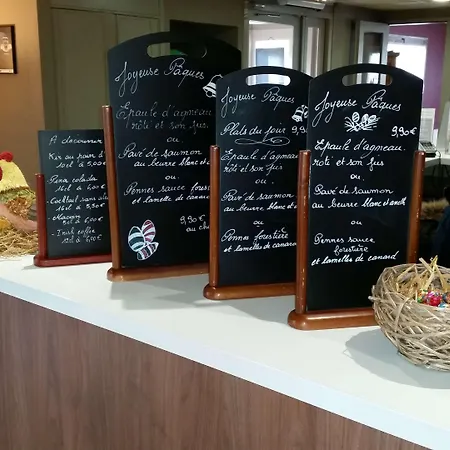 A découvrir
Kir au
16cl à 5,00€
Pina colada
16cl à 6,00€
Cocktail sans
16cl à 5,50€
Irish coffee
Joyeuse Pâques
Epaule d'agneau
rôti et son jus
ou
Pavé de saumon
au beurre blanc et
ou
Pennes sauce
et lamelles de
9,90€
au
Joyeuse Pâques
Plats du jour 9,90€
Epaule d'agneau
rôti et son jus
ou
Pavé de saumon
au beurre blanc et aneth
ou
Pennes forestière
et lamelles de canard
Joyeuse Pâques
9,90€
Epaule d'agneau
rôti et son jus
ou
Pavé de saumon
au beurre blanc et aneth
ou
Pennes sauce
forestière
et lamelles de canard